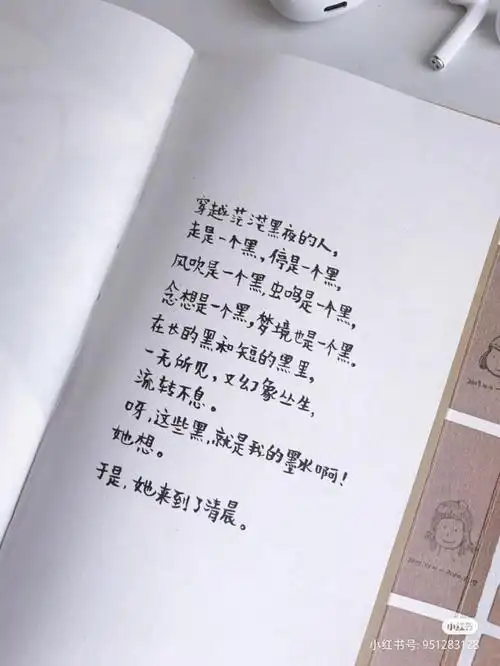 穿越茫茫黑夜的人，
走是一个黑，停是一个黑，
风吹是一个黑，虫鸣是一个黑，
念想是一个黑，梦境也是一个黑。
在长的黑和短的黑里，
一无所见，又幻象丛生，
流转不息。
呀，这些黑，就是我的墨水啊！
她想。
于是，她来到了清晨。
小红书
小红书号: 951283128